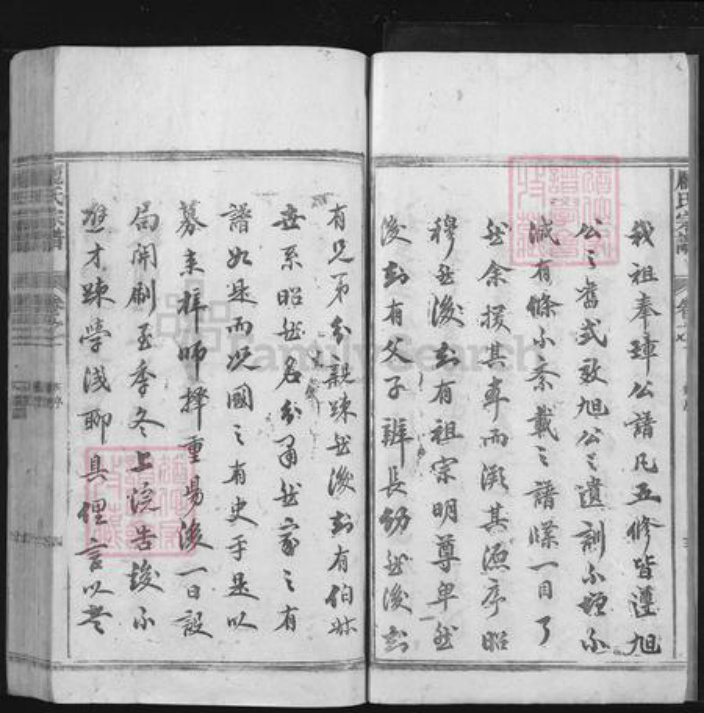 我祖奉璋公譜凡五修皆遵旭
公之舊式敦旭公之遺訓不增不
減有條不紊載之譜牒一目了
然余援其車而溯其源序昭
穆然後知有祖宗明尊卑然
後知有父子辨長幼然後知
有兄弟分親疎然後知有伯叔
世系昭然名分肅然家之有
譜如是而況國之有史乎是以
募來梓師擇重陽後一日設
局開刷至季冬上浣告竣不
才疎學淺聊具俚言以
氏宗譜
FamilySearch